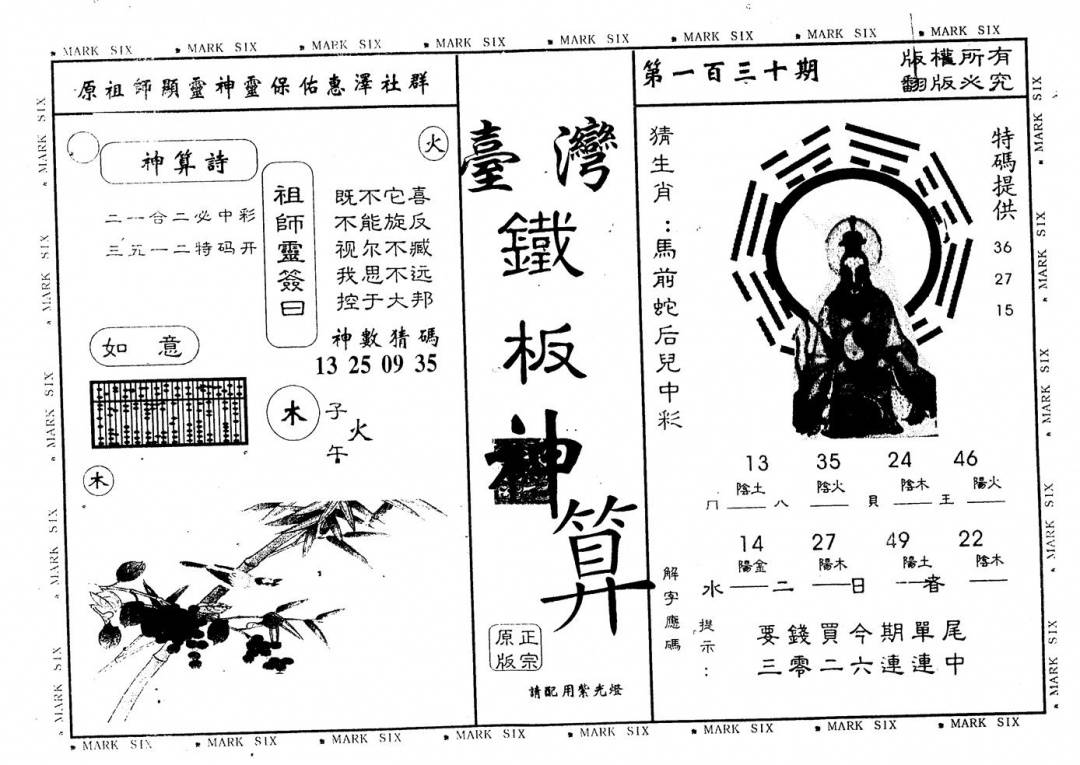 MARK SIX MARK SIX MARK SIX MARK SIX MARK SIX MARK SIX MARK SIX MARK SIX
原祖師顯靈神靈保佑惠澤社群
火
神算詩
二一合二必中彩
三五一二特码开
祖師靈簽曰
既不它喜
不能旋反
视尔不臧
我思不远
控于大邦
神數猜碼
13 25 09 35
如意
木
子
火
午
木
臺灣
鐵
板
神
算
正宗
原版
請配用紫光燈
第一百三十期
版權所有
翻版必究
猜生肖：馬前蛇后兒中彩
特碼提供
36
27
15
13 35 24 46
陰土 陰火 陰木 陽火
冂 八 貝 王
14 27 49 22
陽金 陽木 陽土 陰木
水 二 日 者
解字應碼
提示：
要錢買今期單尾
三零二六連連中
MARK SIX MARK SIX MARK SIX MARK SIX MARK SIX MARK SIX MARK SIX MARK SIX
MARK SIX
MARK SIX
MARK SIX
MARK SIX
MARK SIX
MARK SIX
MARK SIX
MARK SIX
MARK SIX
MARK SIX